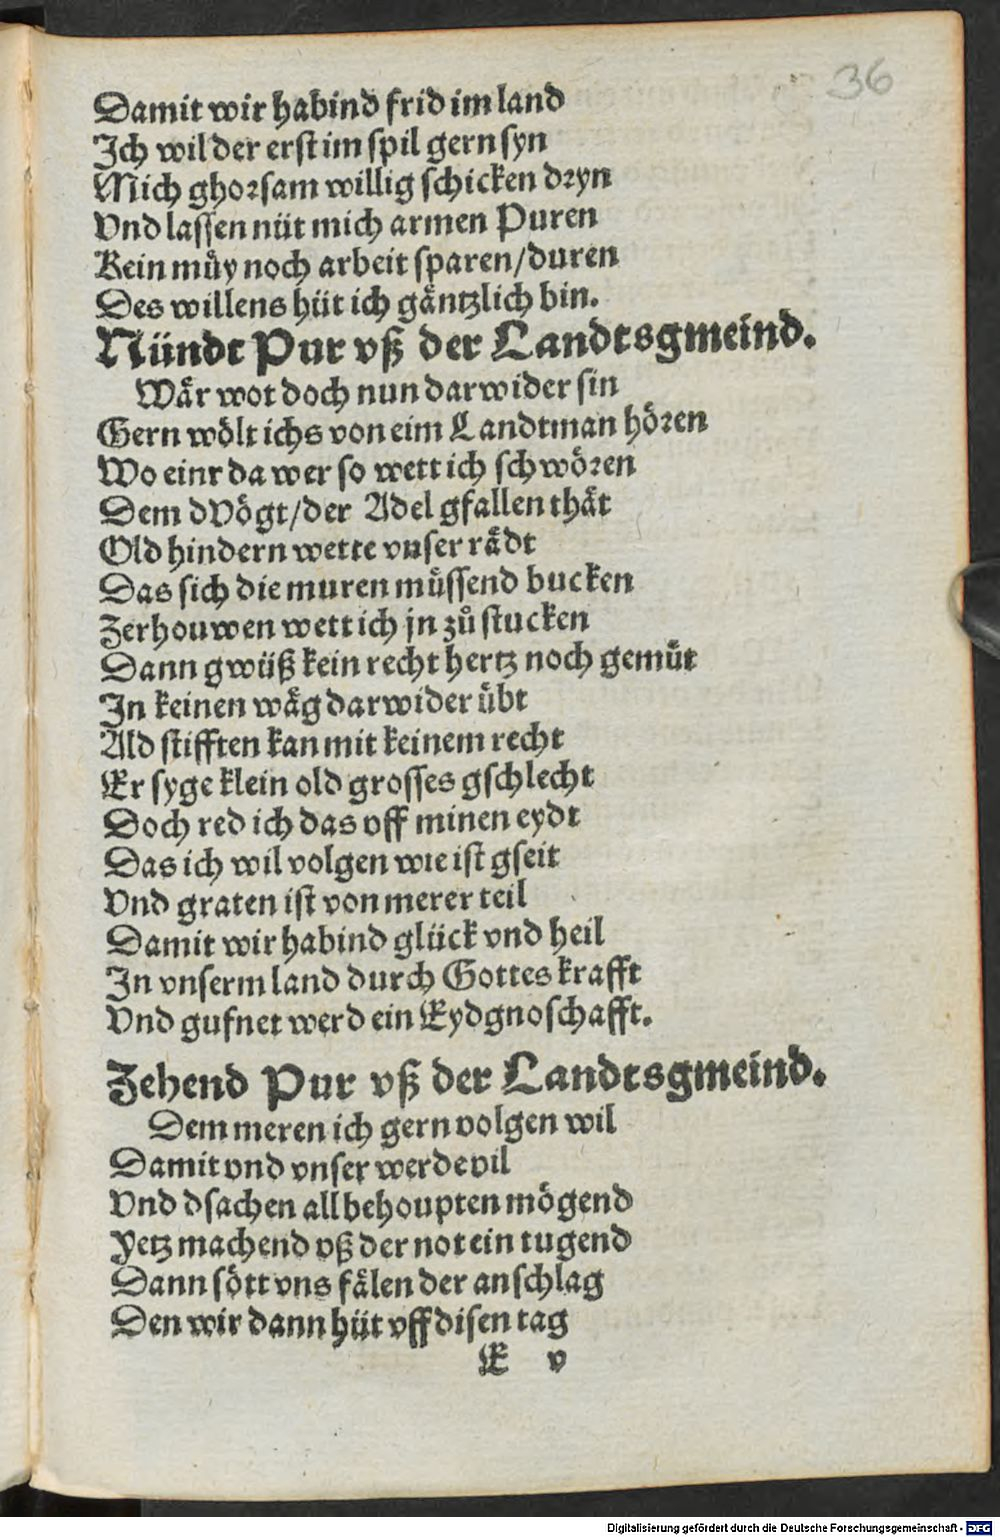 36
Damit wir habind frid im land
Ich wil der erst im spil gern syn
Mich ghorsam willig schicken dryn
Vnd lassen nüt mich armen Puren
Kein müy noch arbeit sparen/duren
Des willens hüt ich gäntzlich bin.
Nündt Pur vß der Landtsgmeind.
Wär wot doch nun darwider sin
Gern wölt ichs von eim Landtman hören
Wo einr da wer so wett ich schwören
Dem dVögt/der Adel gfallen thät
Old hindern wette vnser rädt
Das sich die muren müssend bucken
Zerhouwen wett ich jn zů stucken
Dann gwüß kein recht hertz noch gemüt
In keinen wäg darwider übt
Ald stifften kan mit keinem recht
Er syge klein old grosses gschlecht
Doch red ich das vff minen eydt
Das ich wil volgen wie ist gseit
Vnd graten ist von merer teil
Damit wir habind glück vnd heil
In vnserm land durch Gottes krafft
Vnd gufnet werd ein Eydgnoschafft.
Zehend Pur vß der Landtsgmeind.
Dem meren ich gern volgen wil
Damit vnd vnser werde vil
Vnd dsachen all behoupten mögend
Yetz machend vß der not ein tugend
Dann sött vns fälen der anschlag
Den wir dann hüt vff disen tag
E v
Digitalisierung gefördert durch die Deutsche Forschungsgemeinschaft - DFG